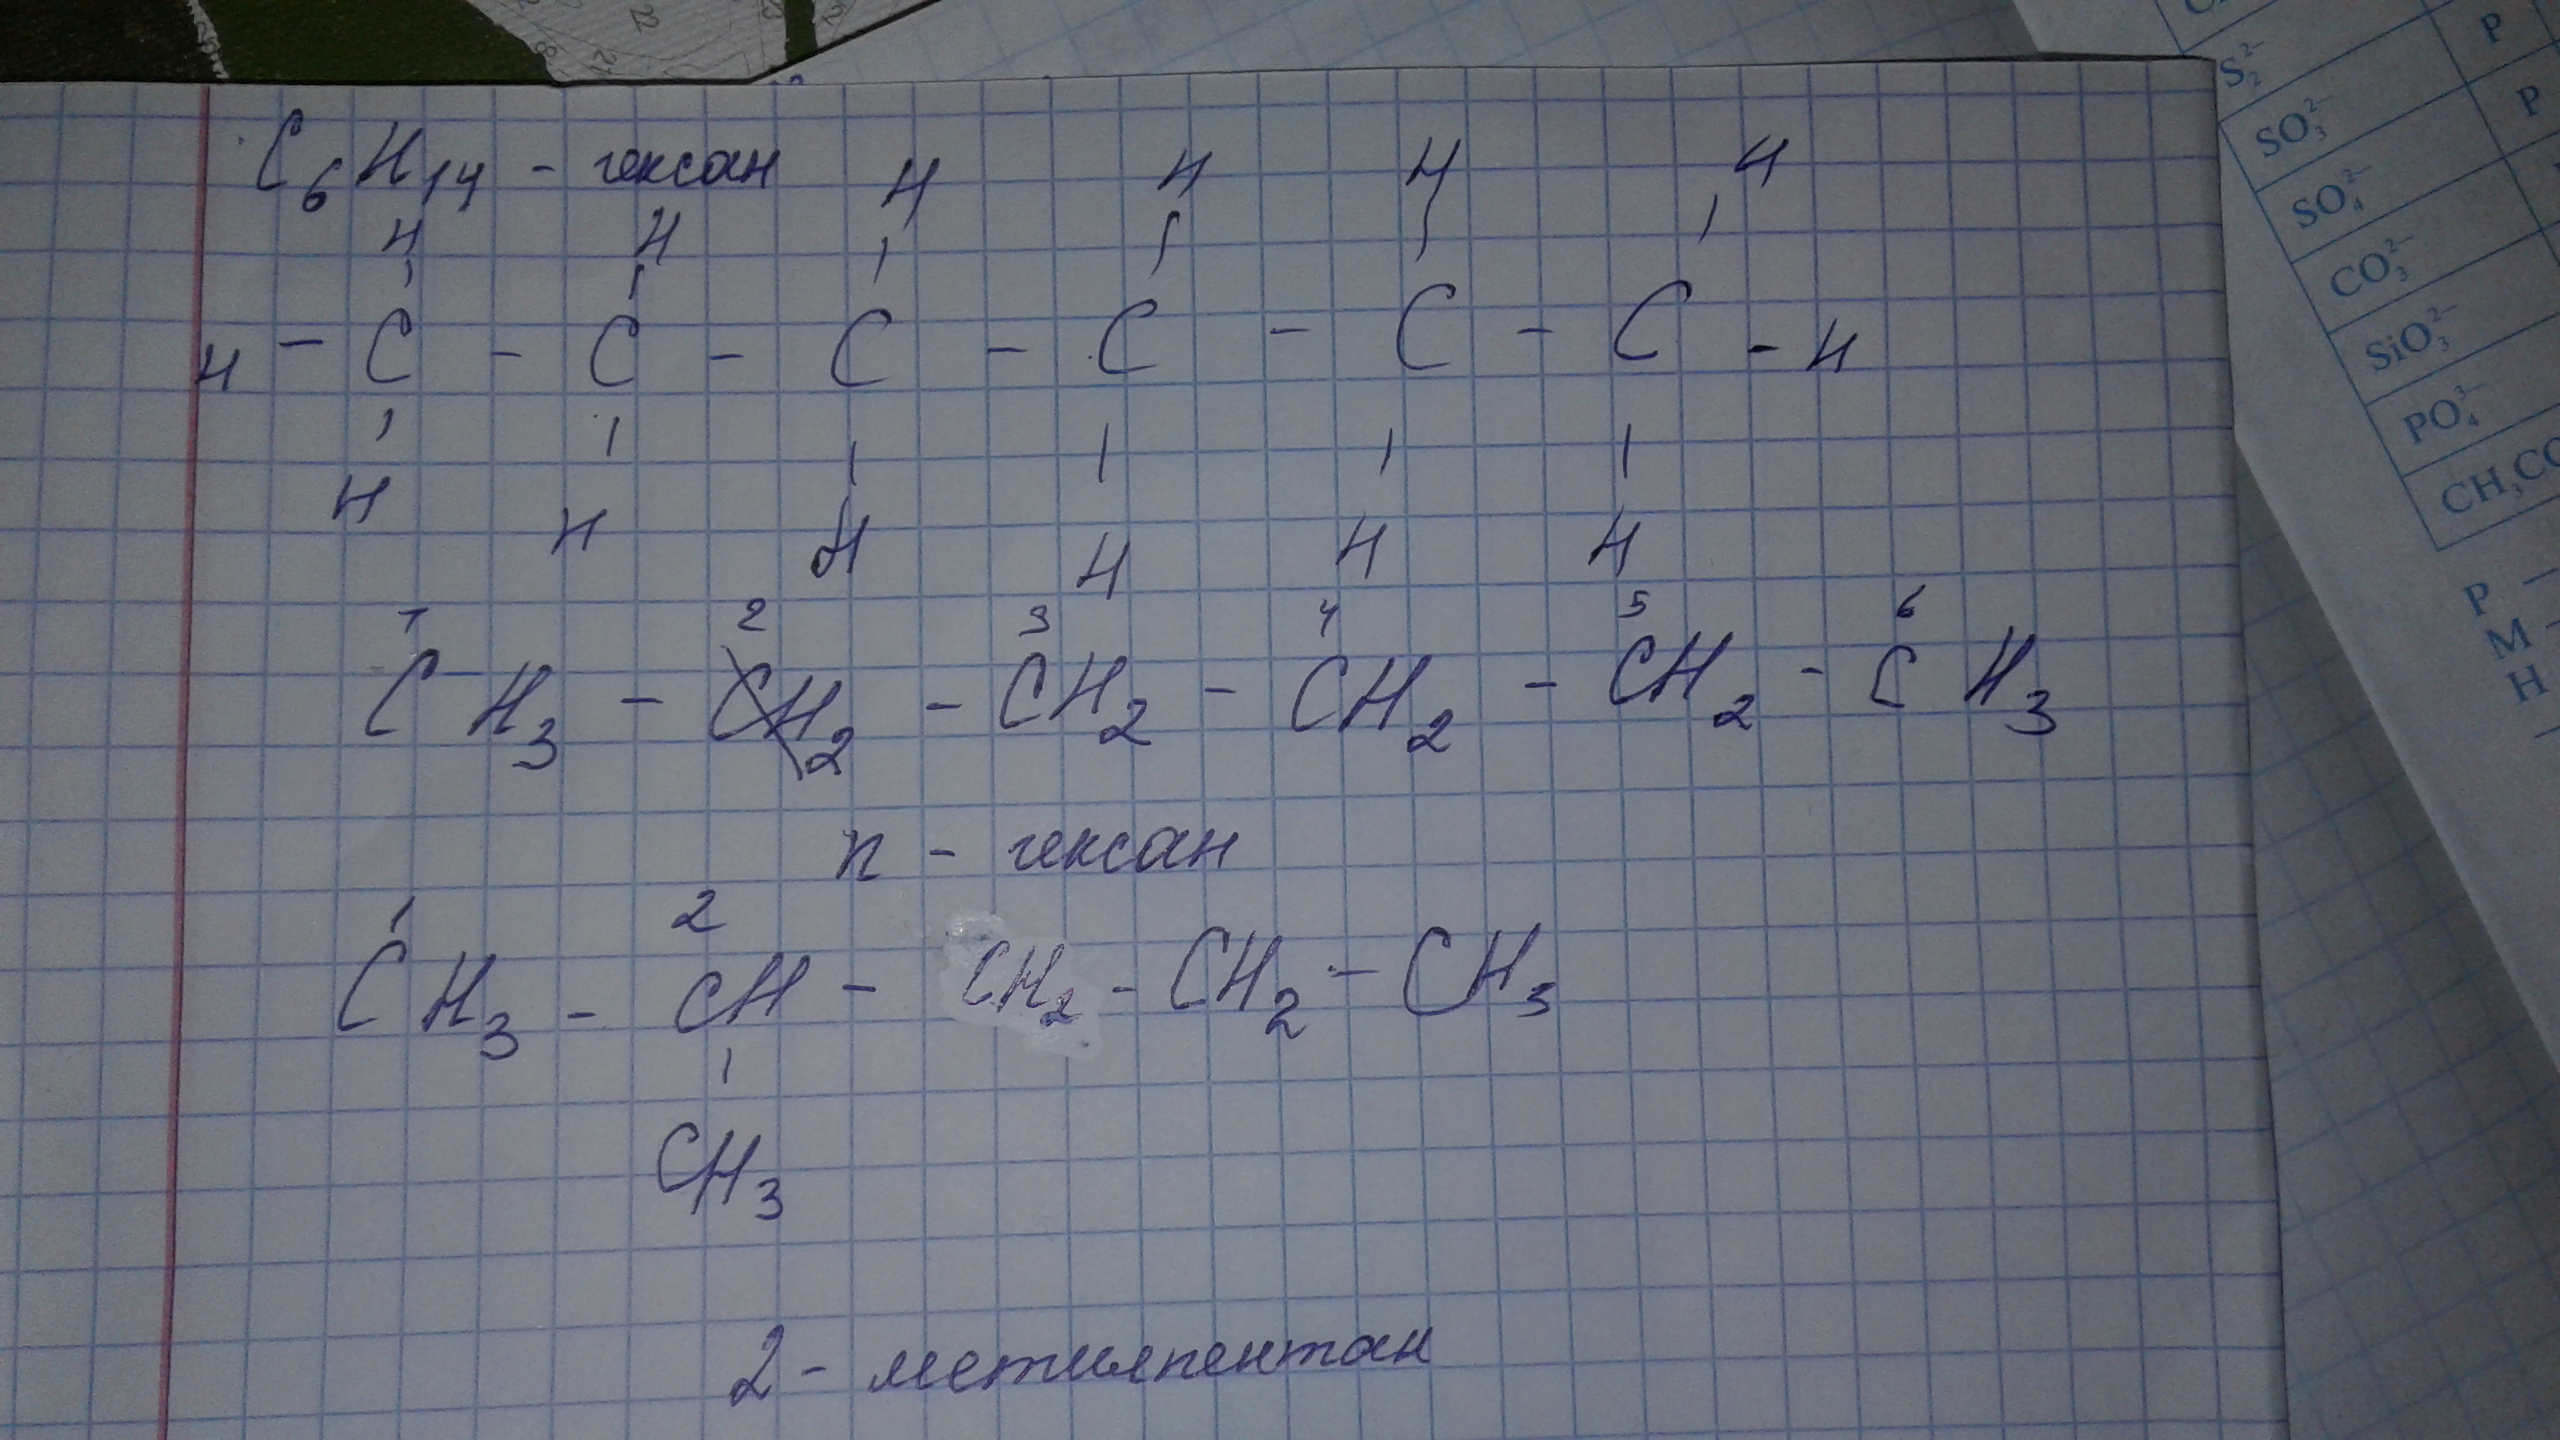 C₆H₁₄ - гексан
H H H H H H
H - C - C - C - C - C - C - H
H H H H H H
1 2 3 4 5 6
CH₃ - CH₂ - CH₂ - CH₂ - CH₂ - CH₃
n - гексан
1 2
CH₃ - CH - CH₂ - CH₂ - CH₃
CH₃
2 - метилпентан
S₂²⁻
SO₃²⁻
SO₄²⁻
CO₃²⁻
SiO₃²⁻
PO₄³⁻
P
P
P -
M -
H
22